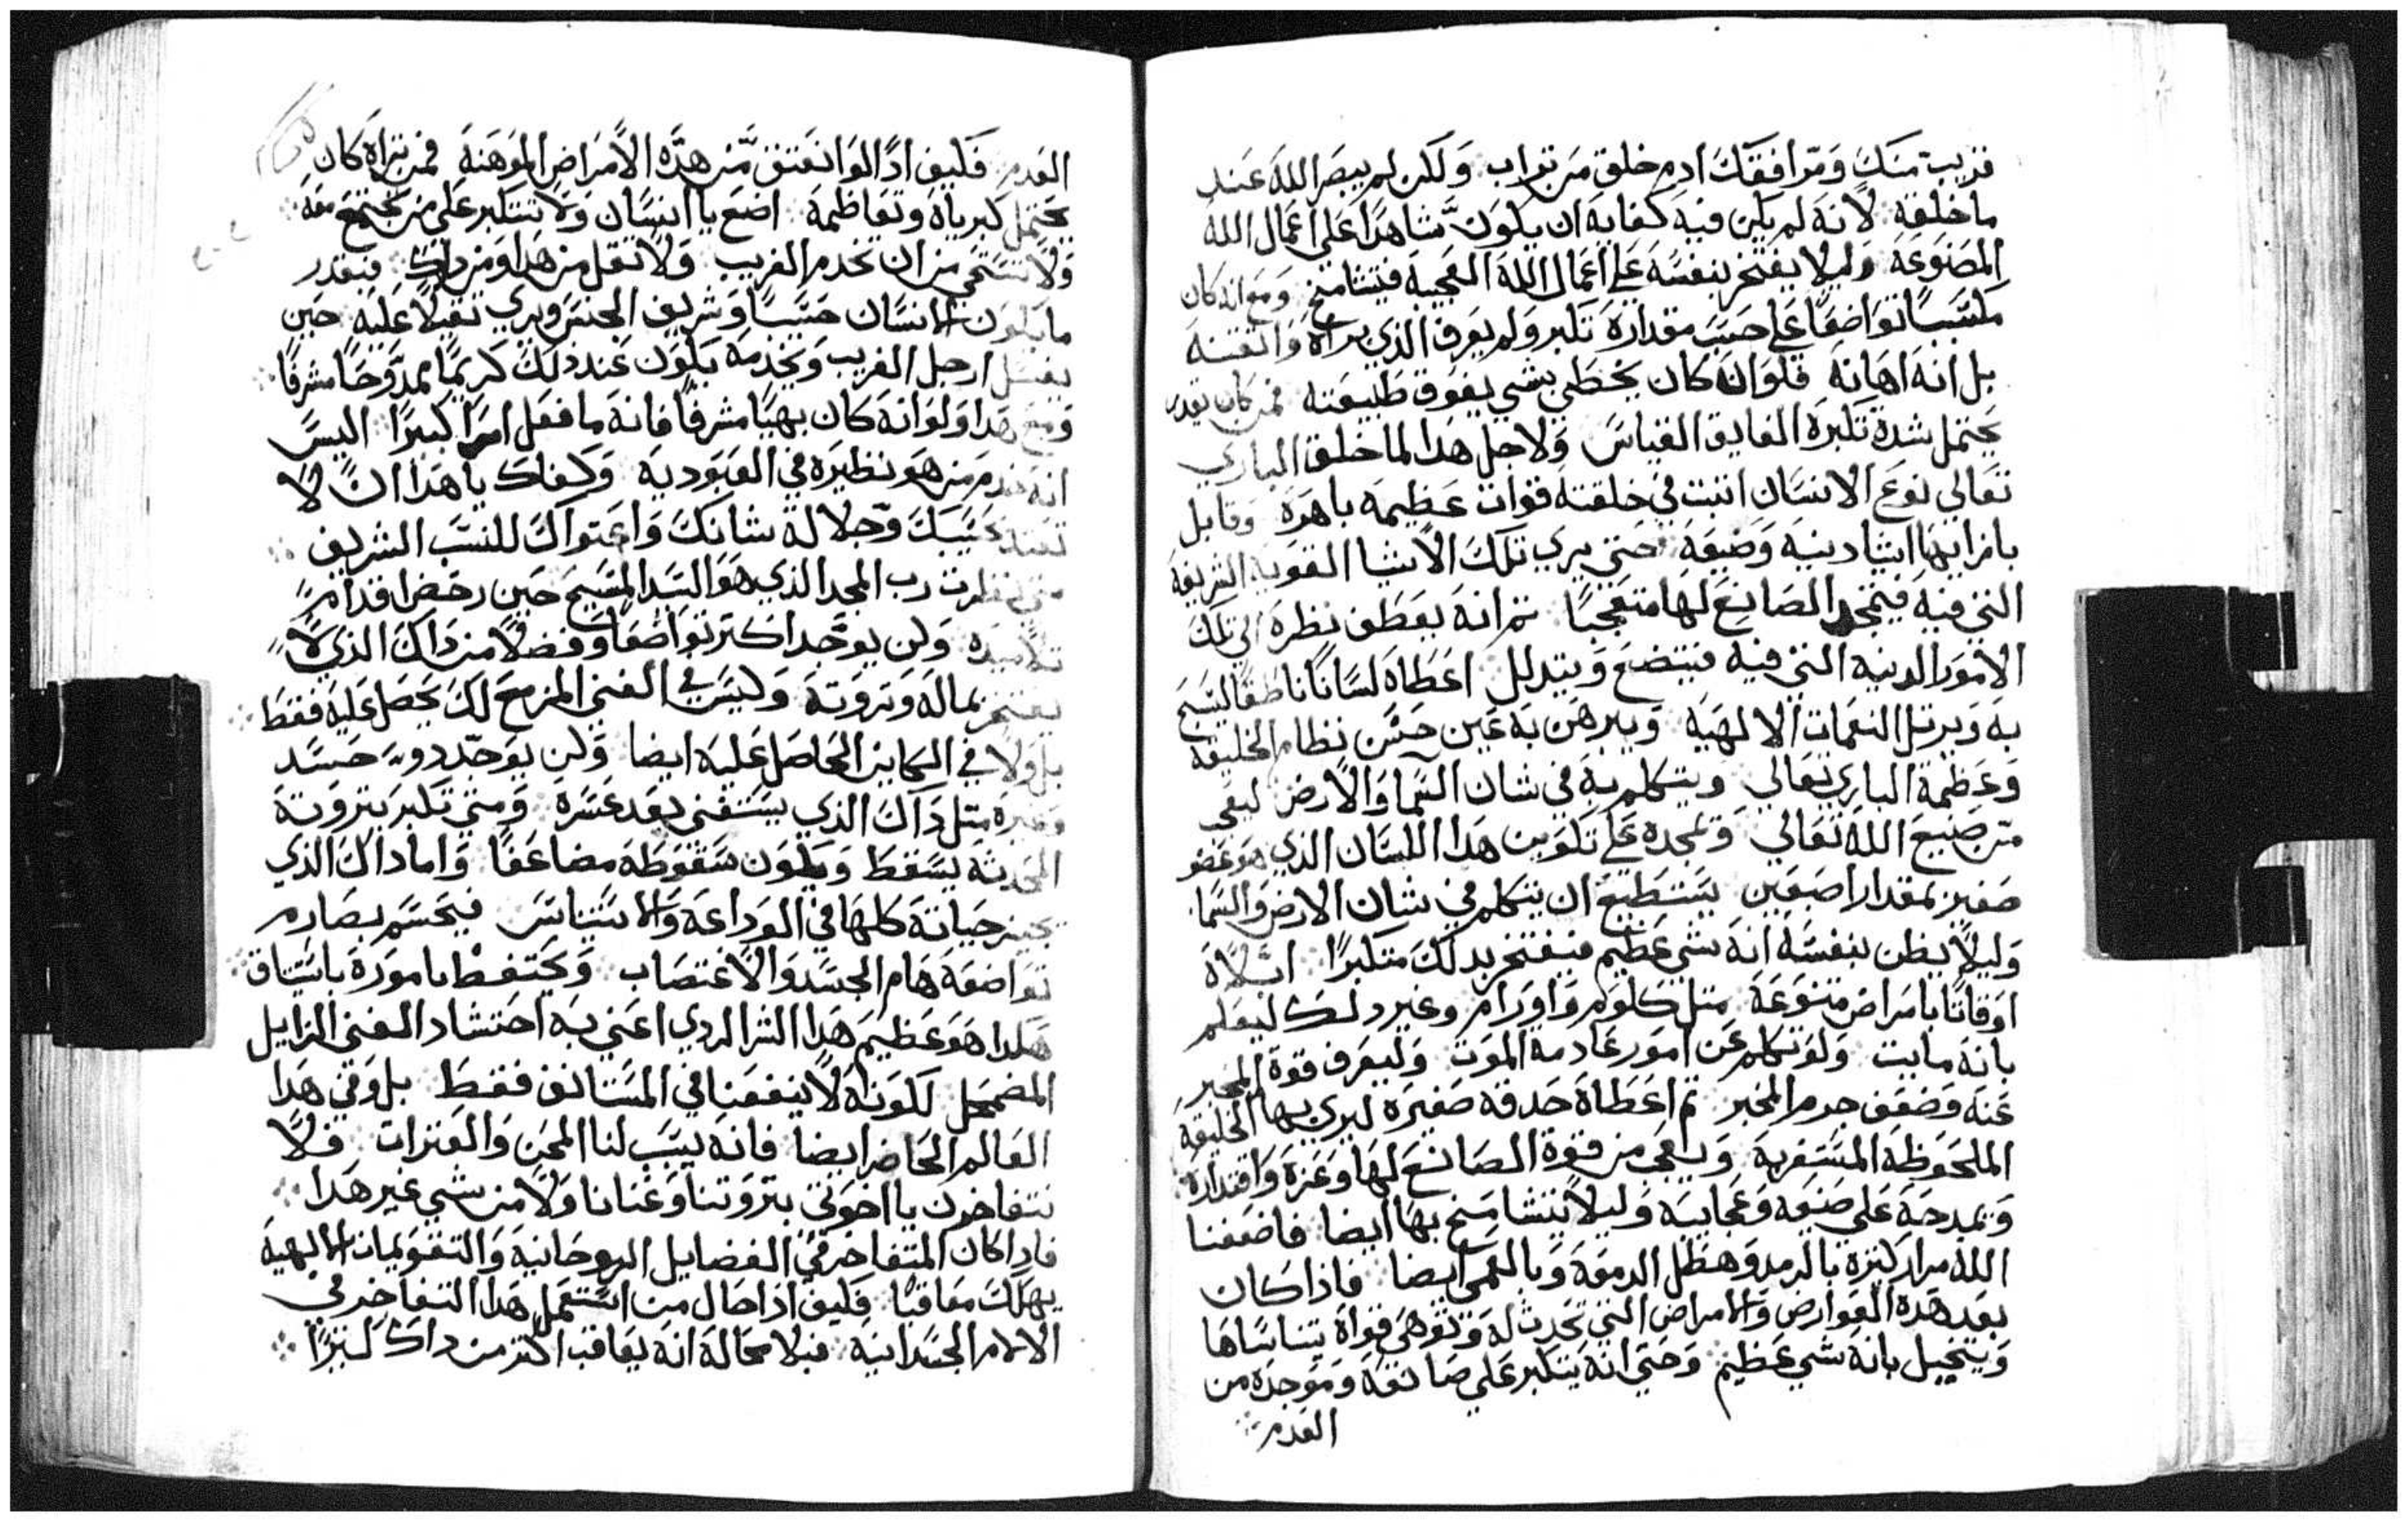 قريب منك ومرافقك ادم خلق من تراب ولكن لم يبصر الله عند
ما خلقه لانه لم يكن فيه كفايه ان يكون شاهدا على اعمال الله
المصنوعه وليلا يفتخر بنفسه على اعمال الله العجيبه فيتشامخ ومع انه كان
مكتسبا تواضعا على حسب مقداره تكبر ولم يعرف الذي براه واتقنه
بل انه اهانه فلو انه كان يحظى بشي يفوق طبيعته فمن كان يقدر
يحتمل شدة تكبره الفايق القياس ولاجل هدا لما خلق الباري
تعالي نوع الانسان اتبت في خلقته قوات عظيمه باهره وقابل
بازايها اشيا دينيه وضيعه حتى يري تلك الاشيا القويه الشريفه
التي فيه فيمجد الصانع لها متعجبا تم انه يعطف نظره الي تلك
الامور الدنيه التي فيه فيتضع ويتدلل اعطاه لسانا ناطقا ليسبح
به ويرتل النغمات الالهيه ويبرهن به عين حسن نظام الخليقه
وعظمة الباري تعالي ويتكلم به في شان السما والارض ليعجب
من صنيع الله تعالي وتمجده على تكوين هدا اللسان الدي هو عضو
صغير بمقدار اصبعين يستطيع ان يتكلم في شان الارض والسما
وليلا يظن بنفسه انه شي عظيم فيفتخر بدلك متكبرا ابتلاه
اوقاتا بامراض متنوعه متل كلوم واورام وغير دلك ليعلم
بانه مايت ولو تكلم عن امور عادمة الموت وليعرف قوة المخبر
عنه وضعف جرم المخبر تم اعطاه حدقه صغيره ليري بها الخليقه
الملحوظه المستغربه ويعجب من قوة الصانع لها وعزه واقتداره
وتمدحه على صنعه وعجايبه وليلا يتشامخ بها ايضا فاضعفنا
الله مرار كتيره بالرمد وهطل الدموعه وبالعمى ايضا فاذا كان
بعد هده العوارض والامراض التي تحدث له وتوهى قواه يتناساها
ويتخيل بانه شي عظيم وحتى انه يتكبر على صانعه وموجده من
العدم
العدم فكيف ادا لو انعتق من هده الامراض الموهنه فمن تراه كان
يحتمل كبرياه وتعاظمه اتضع يا انسان ولا تتكبر على من يجتمع معه
ولا تستحي من ان تخدم القريب ولا تقل من هدا ومن داك فبقدر
ما يكون الانسان حسيبا وشريف الجنس ويري تقيلا عليه حين
يغسل ارجل القريب ويخدمه يكون عند دلك كريما ممدوحا مشرفا
ومع هدا ولو انه كان بهيا مشرفا فانه ما فعل امرا كبيرا اليس
انه خدم من هو نظيره في العبوديه وكفاك يا هدا ان لا
بحسبك وجلالة شانك واعتواك للنسب الشريف
متى نظرت رب المجد الذي هو السيد المسيح حين رحض اقدام
تلاميده ولن يوجد اكتر تواضعا وفضلا من داك الذي لا
يفتخر بماله وتروته وليس في الغنى المزمع لك يحصل عليه فقط
بل ولا في الكاين الحاصل عليه ايضا ولن يوجد دو حسد
وغيره متل داك الذي يستغني بعد عسره ومتى تكبر بتروته
المحدثه يسقط ويكون سقوطه مضاعفا واما داك الذي
حياته كلها في الوداعه والاستيناس فيحسم بصارم
تواضعه هام الجسد والاغتصاب ويحتفظ باموره باستيتاق
هكدا هو عظيم هدا الشر الردي اعني به احتشاد الغنى الزايل
المضمحل لكونه لا ينفعنا في المستانف فقط بل وفي هدا
العالم الحاضر ايضا فانه يسبب لنا المحن والعترات فلا
نتفاخرن يا اخوتي بتروتنا وغنانا ولا من شي غير هدا
فادا كان المتفاخر في الفضايل الروحانيه والتقويمات الالهيه
يهلك معاقبا فكيف اذا حال من استعمل هدا التفاخر في
الالام الجسدانيه فبلا محالة انه يعاقب اكتر من داك كتيرا